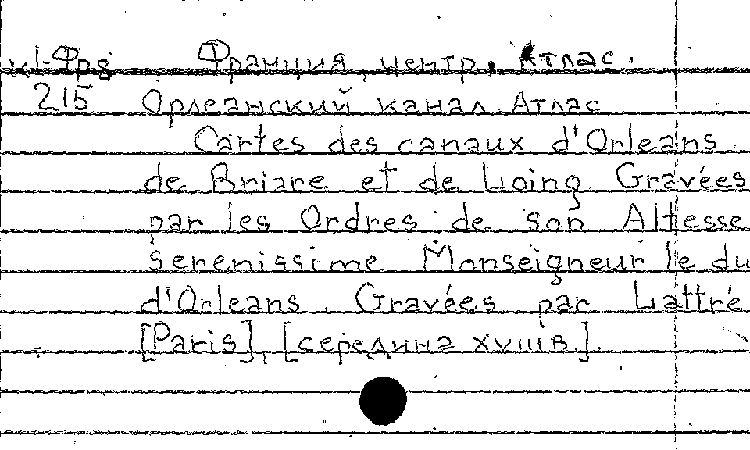 Франция, центр. Атлас.
215 Орлеанский канал. Атлас
Cartes des canaux d'Orleans
de Briare et de Loing Gravées
par les Ordres de son Altesse
Serenissime Monseigneur le du
d'Orleans. Gravées par Lattré
[Paris], [середина XVIII в.].